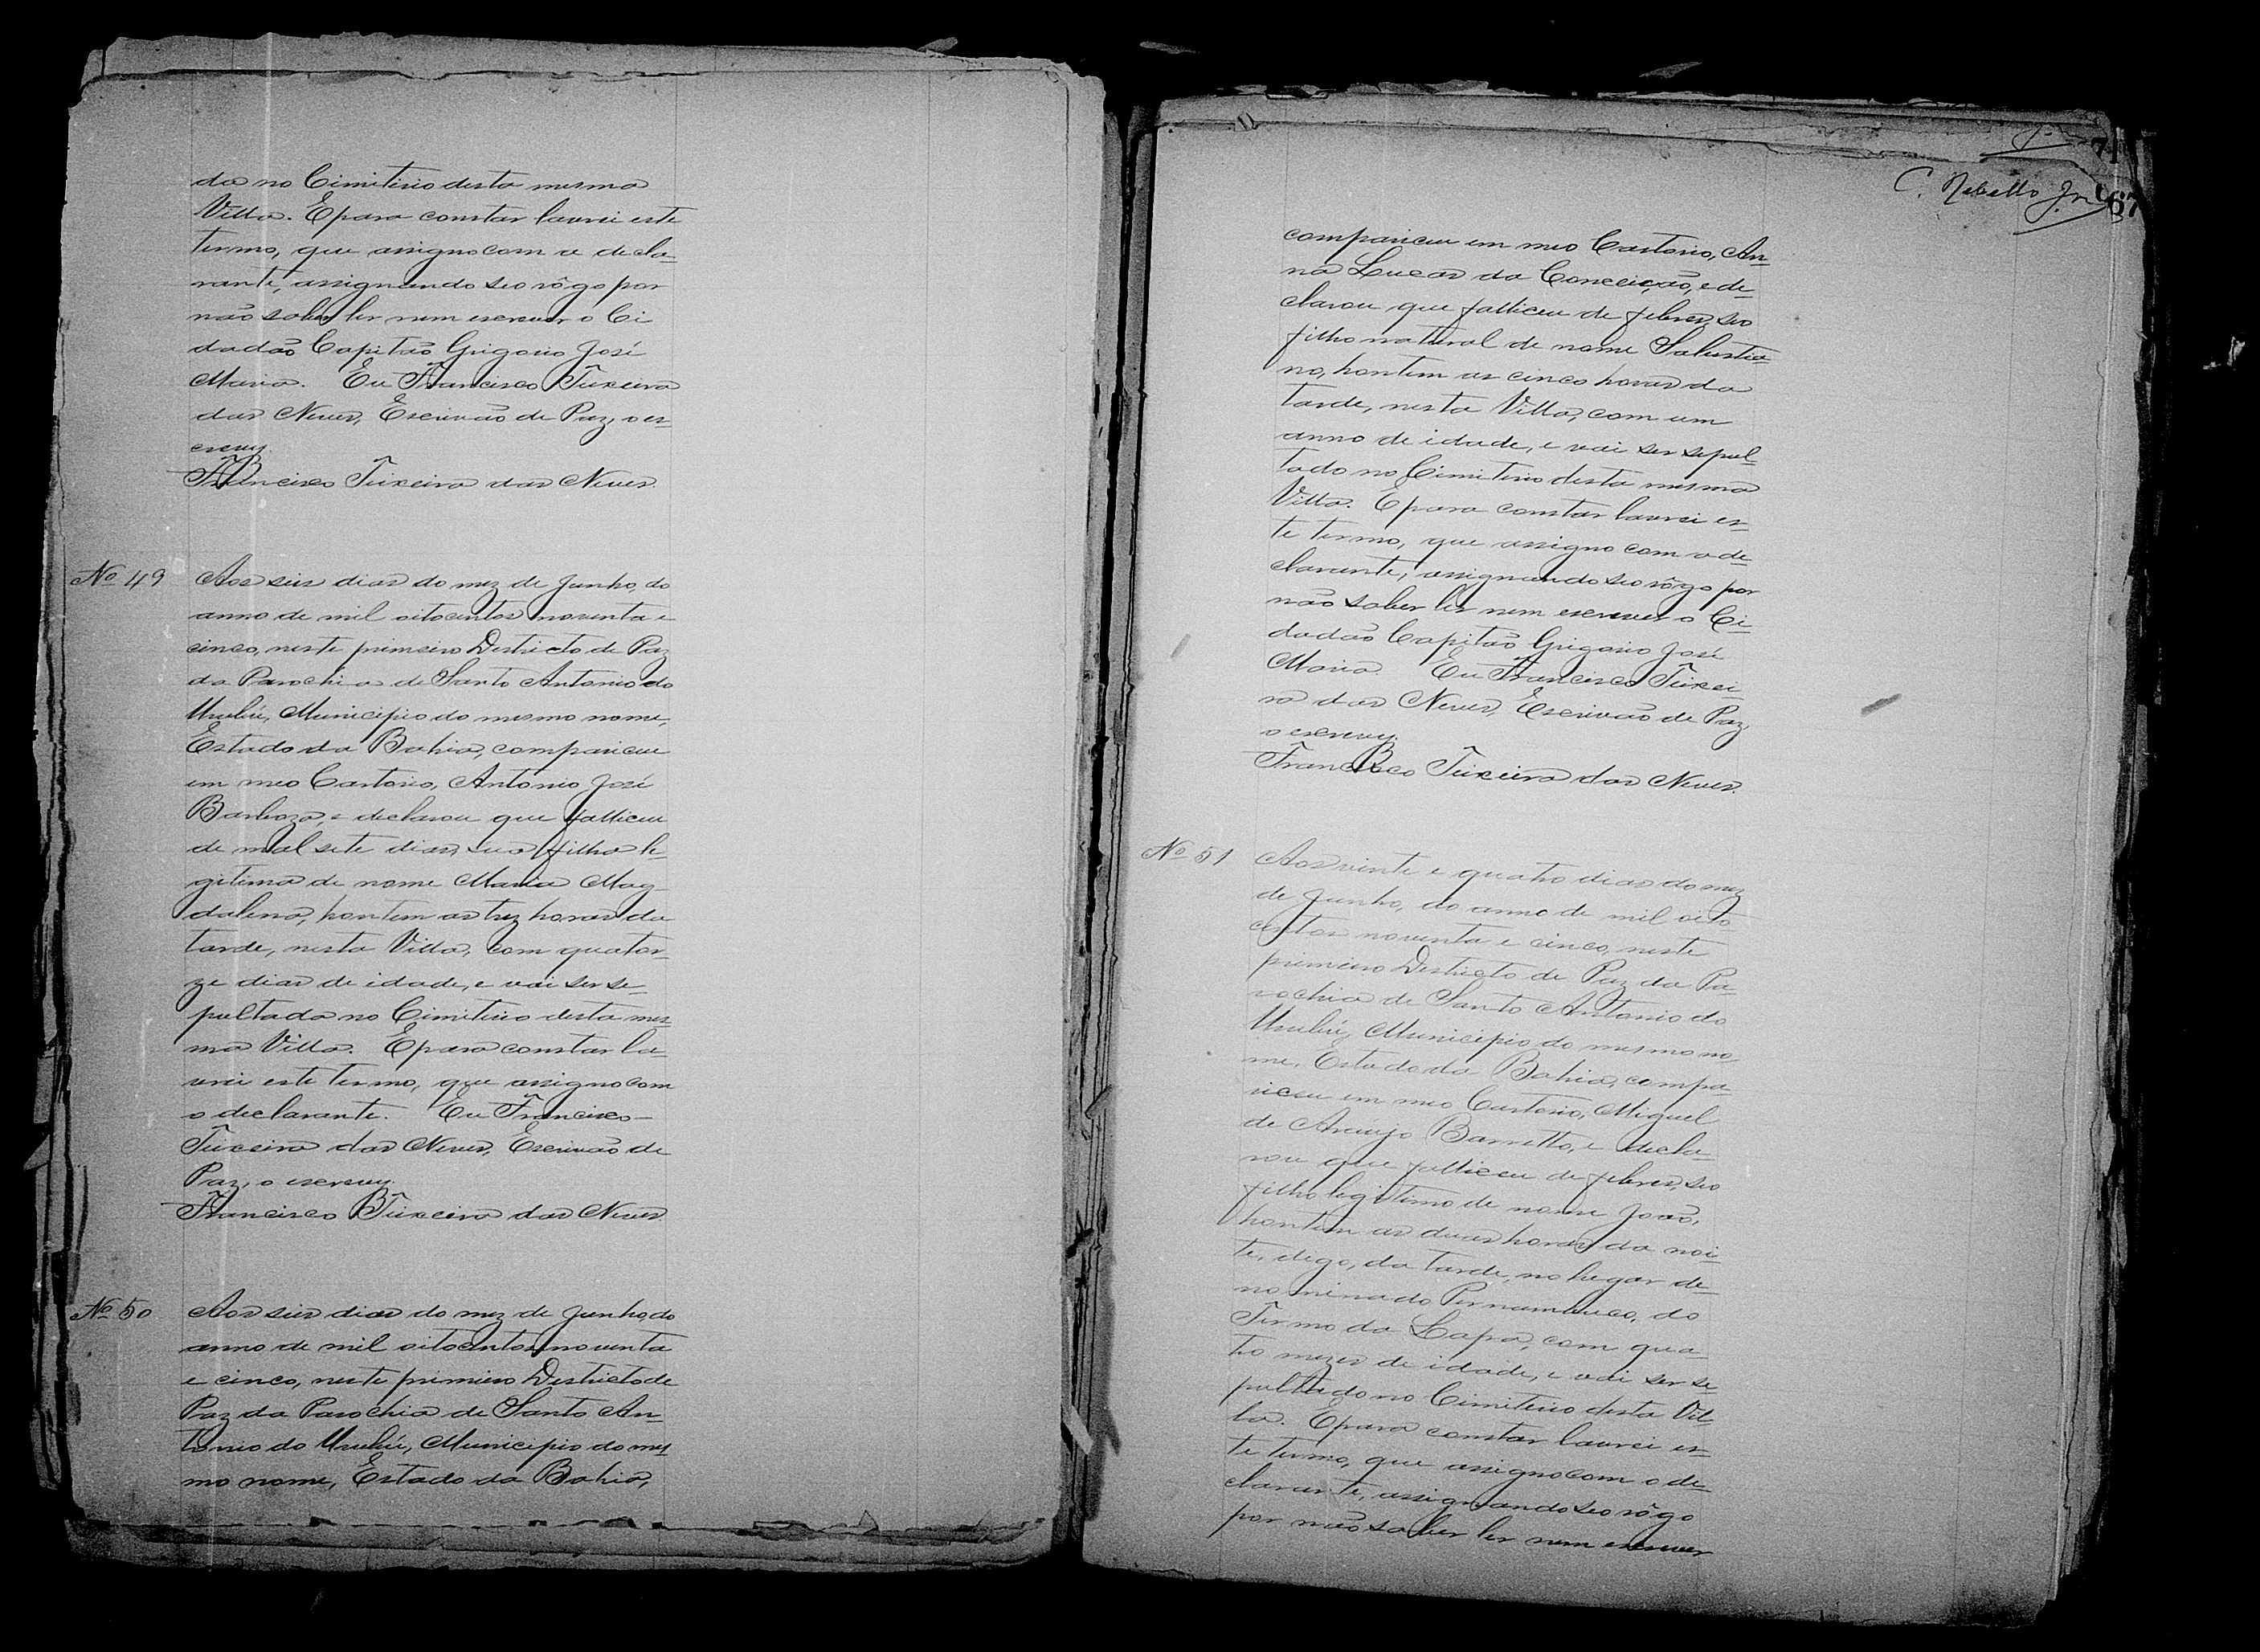 da no Cimiterio desta mesma
Villa. E para constar lavrei este
termo, que assigno com a decla-
rante, assignando seo rôgo por
não saber ler nem escrever o Ci
dadão Capitão Grigorio José
Maria. Eu Francisco Teixeira
das Neves, Escrivão de Paz, o es-
crevy.
Francisco Teixeira das Neves.
No 49
Aos seis dias do mez de Junho, do
anno de mil oitocentos noventa e
cinco, neste primeiro Destricto de Paz
da Parochia de Santo Antonio do
Urubú, Municipio do mesmo nome,
Estado da Bahia, compariceu
em meo Cartorio, Antonio José
Barboza, e declarou que falliceu
de mal sete dias, sua filha le-
gitima de nome Maria Mag-
dalena, hontem as trez horas da
tarde, nesta Villa, com quator-
ze dias de idade, e vai ser se-
pultada no Cimiterio desta mes-
ma Villa. E para constar la-
vrei este termo, que assigno com
o declarante. Eu Francisco
Teixeira das Neves, Escrivão de
Paz, o escrevy.
Francisco Teixeira das Neves
No 50
Aos seis dias do mez de Junho, do
anno de mil oitocentos noventa
e cinco, neste primeiro Destricto de
Paz da Parochia de Santo An-
tonio do Urubú, Municipio do mes-
mo nome, Estado da Bahia,
71
C. Rebello Jr
67
compariceu em meo Cartorio, An-
na Lucas da Conceição, e de-
clarou que falliceu de febres, seo
filho natural de nome Salustia-
no, hontem as cinco horas da
tarde, nesta Villa, com um
anno de idade, e vai ser sepul-
tado no Cimiterio desta mesma
Villa. E para constar lavrei es-
te termo, que assigno com a de-
clarante, assignando seo rôgo por
não saber ler nem escrever o Ci-
dadão Capitão Grigorio José
Maria. Eu Francisco Teixei-
ra das Neves, Escrivão de Paz,
o escrevy.
Francisco Teixeira das Neves.
No 51
Aos vinte e quatro dias do mez
de Junho, do anno de mil oito
centos noventa e cinco, neste
primeiro Destricto de Paz da Pa-
rochia de Santo Antonio do
Urubú, Municipio do mesmo no-
me, Estado da Bahia, compa-
riceu em meo Cartorio, Miguel
de Araujo Barretto, e decla-
rou que falliceu de febres, seo
filho legitimo de nome João,
hontem as duas horas da noi-
te, digo, da tarde, no lugar de-
nominado Pernambuco, do
Termo da Lapa, com qua-
tro mezes de idade, e vai ser se-
pultado no Cimiterio desta Vil-
la. E para constar lavrei es-
te termo, que assigno com o de-
clarante, assignando seo rôgo
por não saber ler nem escrever